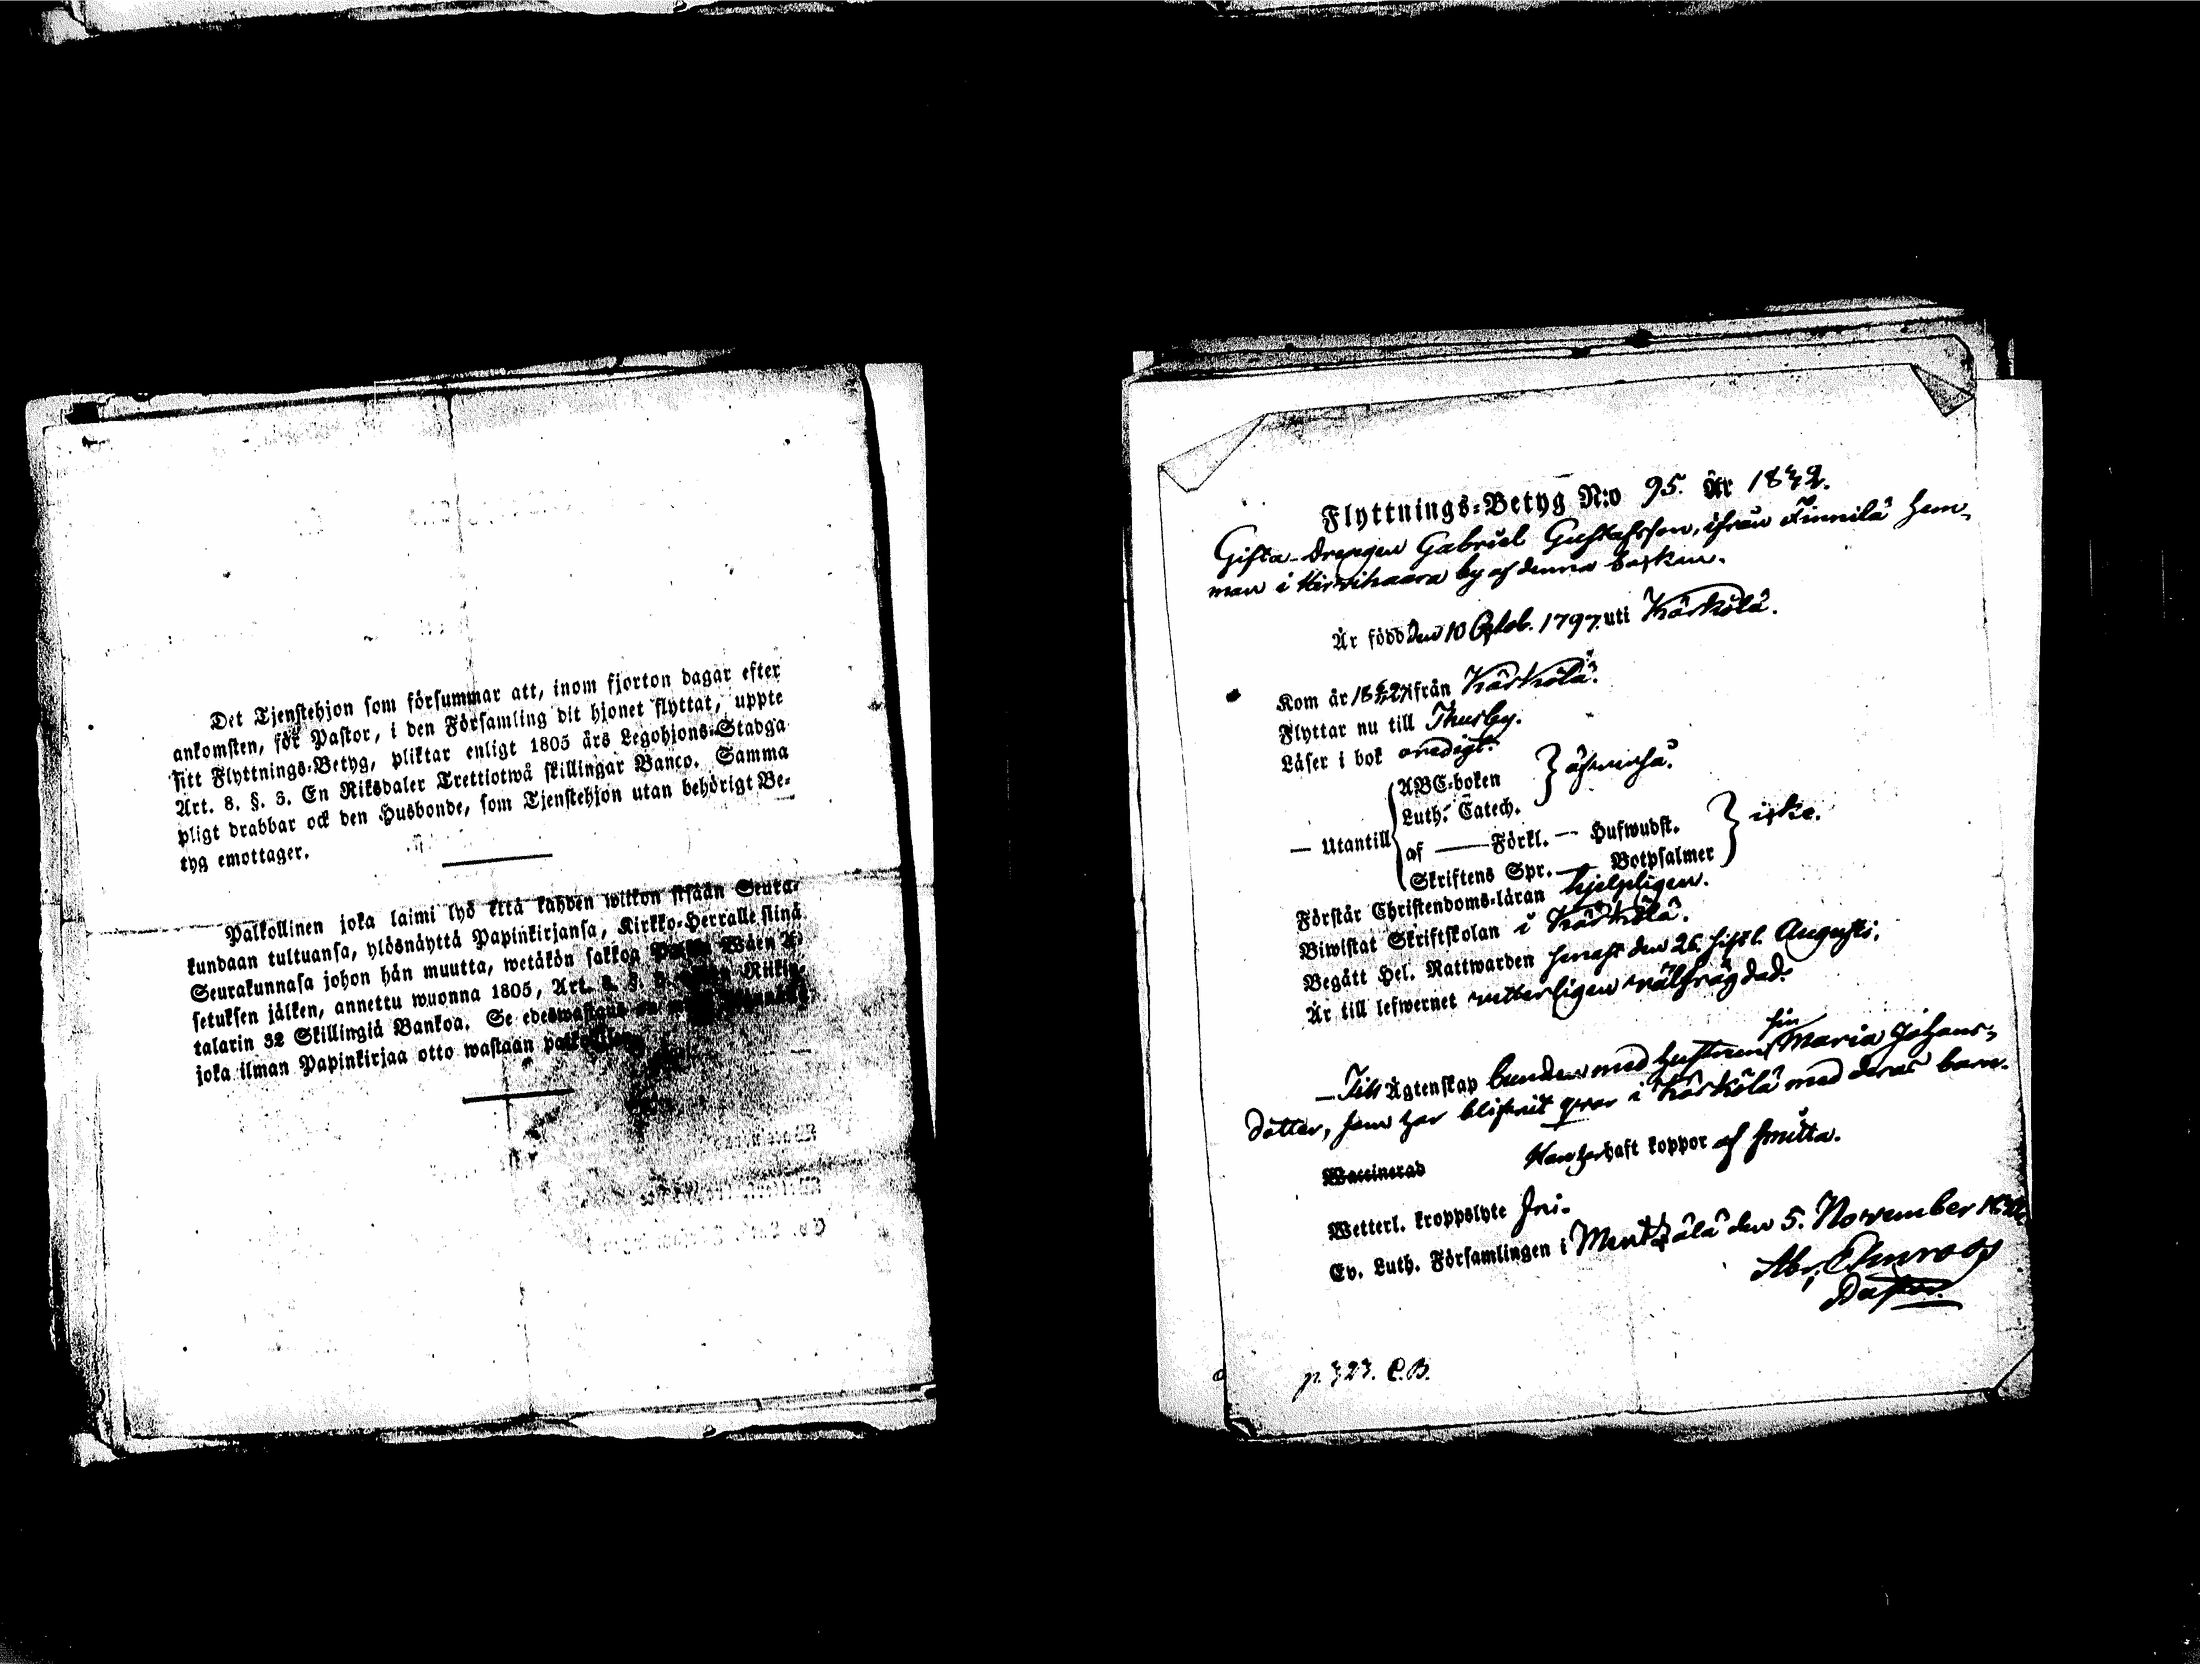 Det Tjenstehjon som försummar att, inom fjorton dagar efter
ankomsten, för Pastor, i den Församling dit hjonet flyttat, uppte
sitt Flyttnings-Betyg, pliktar enligt 1805 års Legohjons-Stadga
Art. 8. §. 3. En Riksdaler Trettiotwå skillingar Banco. Samma
pligt drabbar ock den Husbonde, som Tjenstehjon utan behörigt Be-
tyg emottager.
Palkollinen joka laimi lyö että kahden wiikon sisään Seura-
kundaan tultuansa, ylösnäyttä Papinkirjansa, Kirkko-Herralle siinä
Seurakunnasa johon hän muutta, wetäkön sakkoa Wäen A-
setuksen jälken, annettu wuonna 1805, Art. 8. §. Rikin-
talarin 32 Skillingiä Bankoa. Se
joka ilman Papinkirjaa otto wastaan
Flyttnings-Betyg N:o 95. År 1842.
Gifta drengen Gabriel Gustafsson, ifrån Finnilä hem-
man i Hirvihaara by af denna Socken.
Är född den 10 Octob. 1797 uti Kärkölä.
Kom år 1842 ifrån Kärkölä.
Flyttar nu till Thusby.
Läser i bok oredigt.
— Utantill
ABC-boken
Luth. Catech. } äfvenså.
af — Förkl. — Hufwudst.
Skriftens Spr. — Botpsalmer } icke.
Förstår Christendoms-läran hjelpligen.
Biwistat Skriftskolan i Kärkölä.
Begått Hel. Nattwarden senast den 26. sistl. Augusti.
Är till lefwernet vetterligen välfrägdad.
— Till Ägtenskap bunden med hustrun sin Maria Johans-
dotter, som har blifvit qvar i Kärkölä med deras barn.
Waccinerad Han har haft koppor af smitta.
Wetterl. kroppslyte fri.
Ev. Luth. Församlingen i Mentzälä den 5. November 1842.
Abr. Ehnroos
Pastor.
p. 323. C.B.